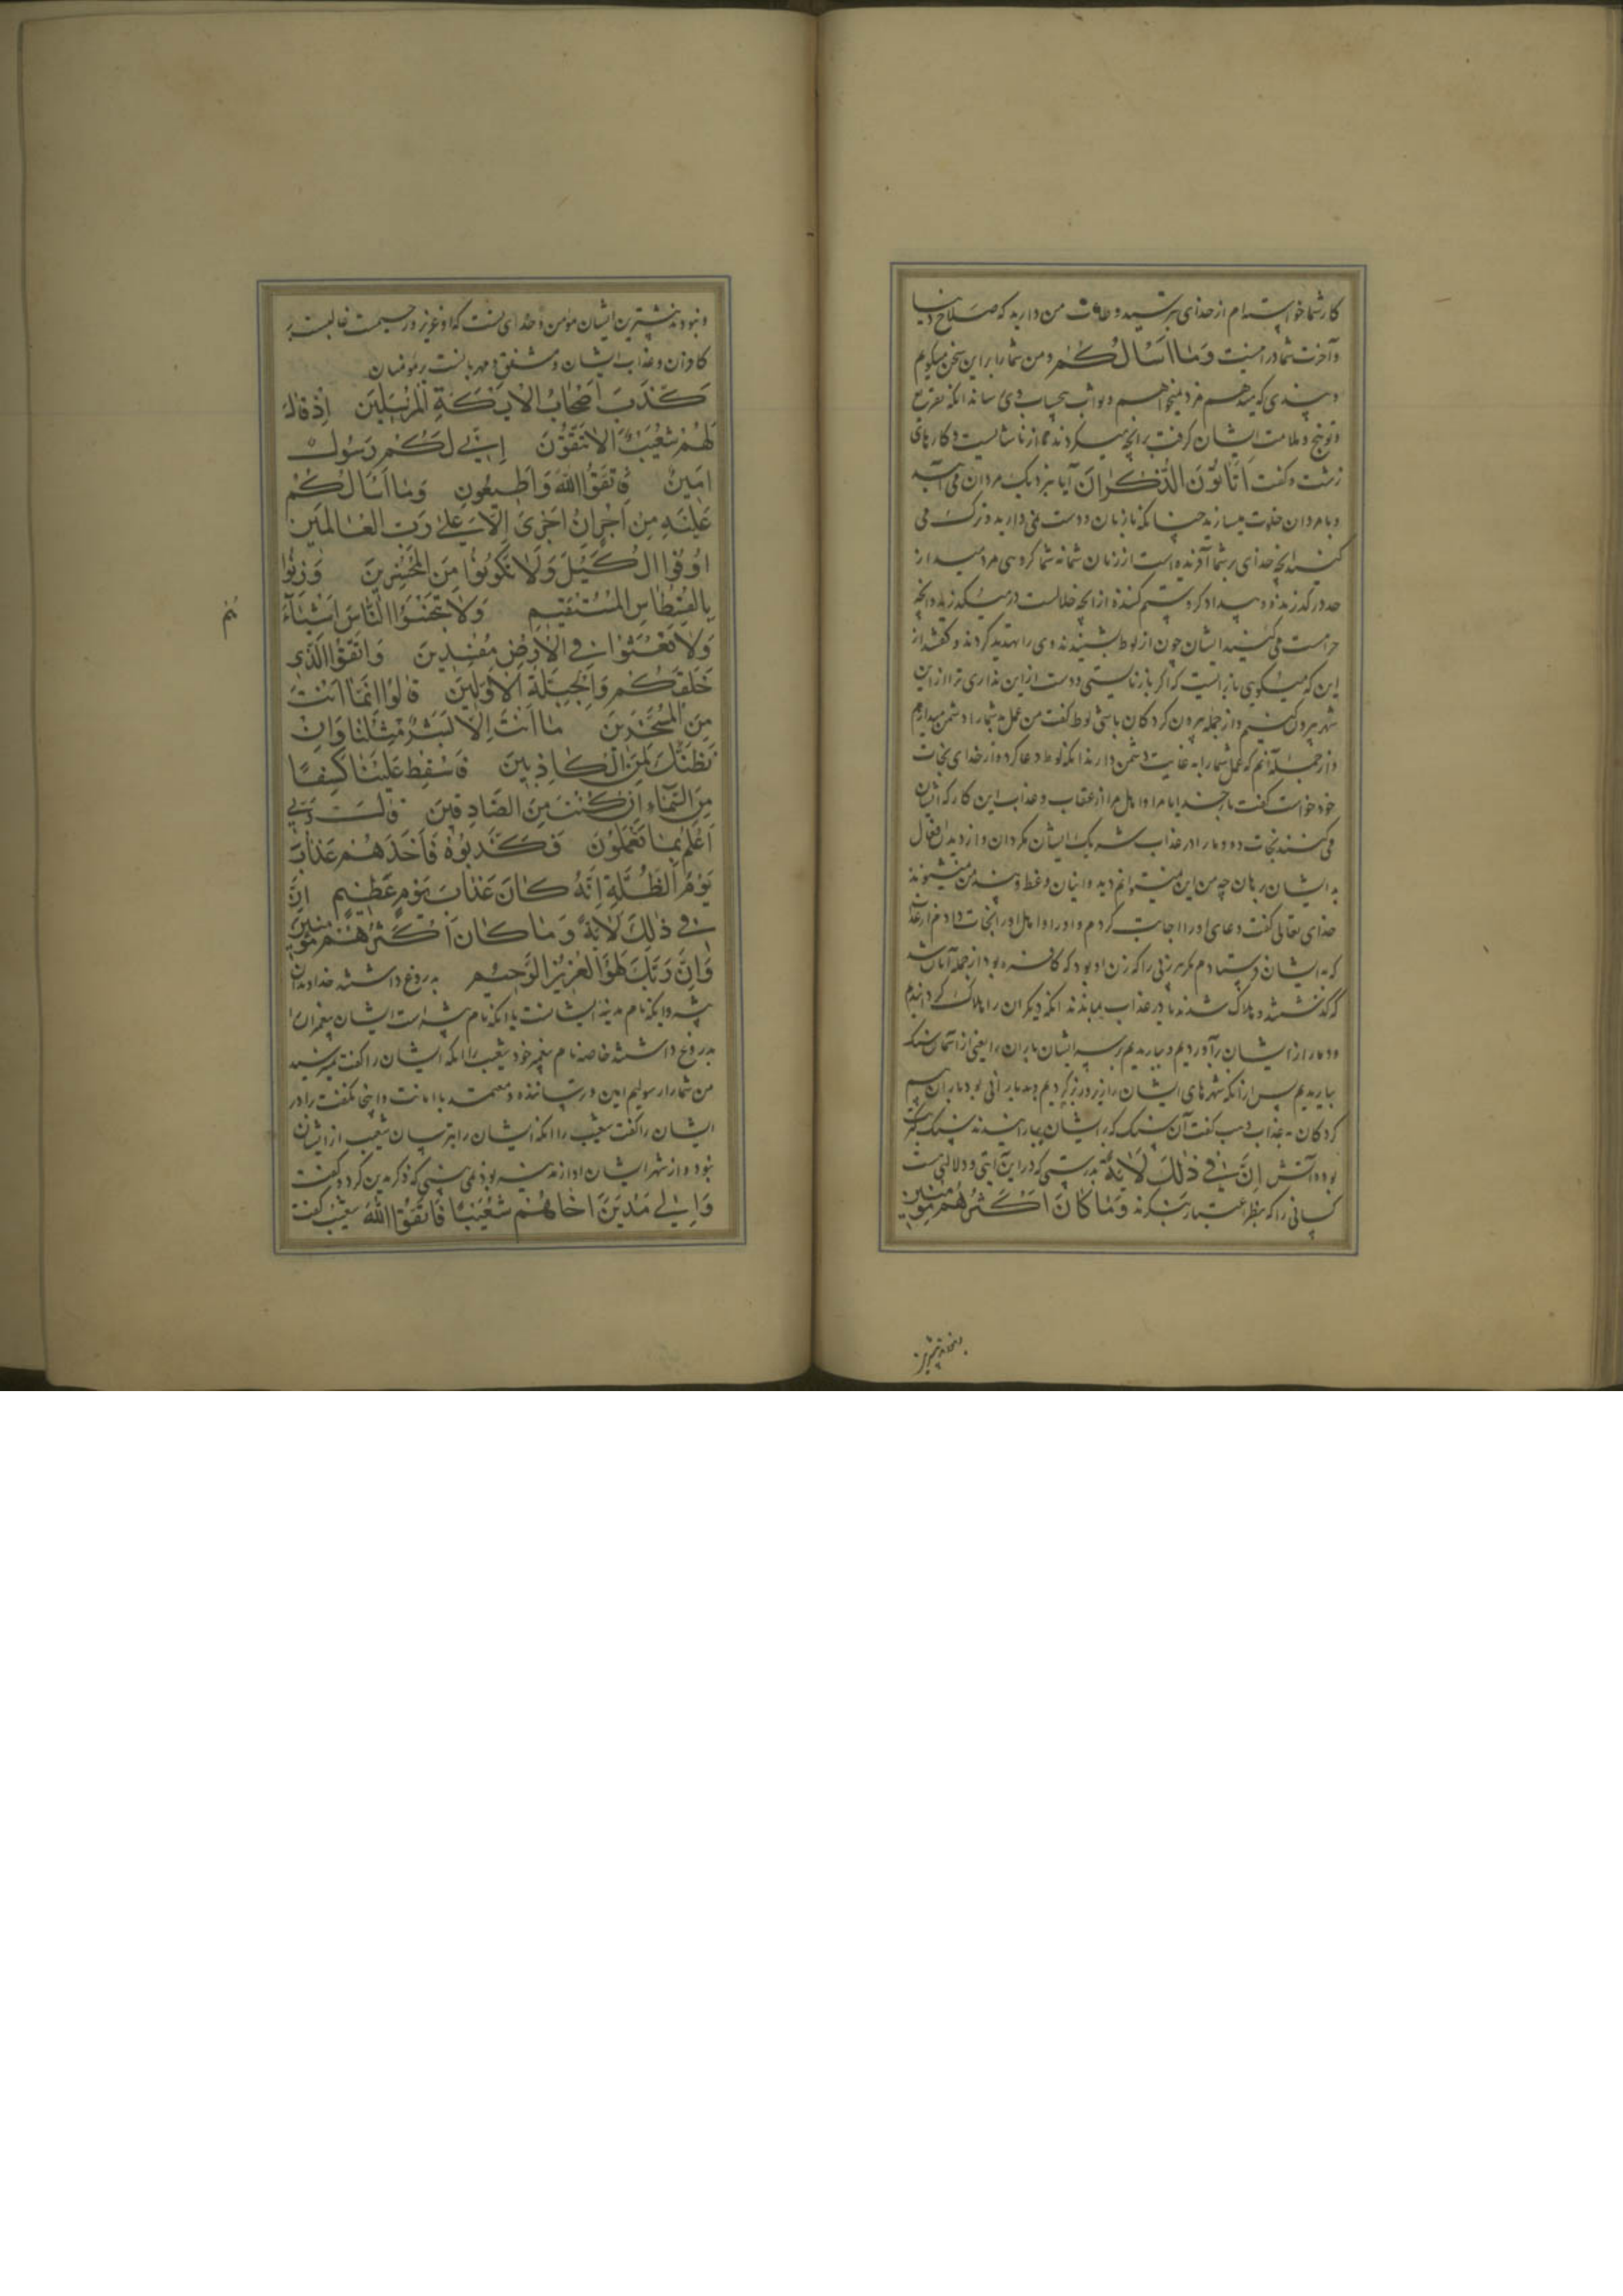 کار شما خواسته‌ام از خدای بترسید و طاعت من دارید که صلاح دنیا
و آخرت شما در اینست وَمَا اَسْأَلُكُمْ و من شما را بر این سخن میگویم
و پندی که میدهم مزد نمیخواهم و ثواب بحساب وی رساند آنکه تقریع
و توبیخ و ملامت ایشان گرفت بر آنچه میکردند از ناشایست و کارهای
زشت و گفت اَتَأْتُونَ الذُّكْرَانَ آیا بنزدیک مردان می آیید
و با مردان خلوت میسازید چنانکه با زنان و دست می دارید و ترک می
کنید آنچه خدای بر شما آفریده است از زنان شما نه شما گروهی مردمید از
حد درگذرنده و بیدادگر و ستم کننده از آنچه حلالست در میگذرید و آنچه
حرامست می کنید ایشان چون از لوط بشنیدند وی را تهدید کردند و گفتند از
این که میگویی باز ایست که اگر باز نایستی و دست از این نداری ترا از این
شهر بیرون کنیم و از جمله بیرون کردگان باشی لوط گفت من عمل شما را دشمن میدارم
و از جمله آنم که عمل شما را به غایت دشمن دارند آنکه لوط دعا کرد و از خدای نجات
خود خواست گفت بار خدایا مرا و اهل مرا از عقاب و عذاب این کار که ایشان
می کنند نجات ده و ما را در عذاب شریک ایشان مگردان و از دیدن افعال
بد ایشان برهان چه من این نمیتوانم دید و اینان وعظ و پند من نمیشنوند
خدای تعالی گفت دعای او را اجابت کردم و او را و اهل او را نجات دادم از عذابی
که به ایشان فرستادم مگر پیرزنی را که زن او بود که کافره بود از جمله آنان شد
که گذشتند و هلاک شدند تا در عذاب بماندند آنکه دیگران را هلاک گردانیدم
و دمار از ایشان برآوردیم و بباریدیم بر سر ایشان باران را یعنی از آسمان سنگ
بباریدیم پس از آنکه شهرهای ایشان را زیر و زبر کردیم و بد بارانی بود باران بیم
کردگان بعذاب وهب گفت آن سنگ که بر ایشان بباریدند سنگ کبریت
بود و آتش اِنَّ فِي ذٰلِكَ لَاٰيَةً بدرستی که در این آیتی و دلالتی هست
کسانی را که بنظر اعتبار بنگرند وَمَا كَانَ اَكْثَرُهُمْ مُؤْمِنِينَ
و نبودند بیشترین ایشان مؤمن و خدای تست که او عزیز و رحیمست غالبست بر
کافران و عذاب ایشان و مشفق و مهربانست بر مؤمنان
كَذَّبَ اَصْحَابُ الْاَيْكَةِ الْمُرْسَلِينَ اِذْ قَالَ
لَهُمْ شُعَيْبٌ اَلَا تَتَّقُونَ اِنِّي لَكُمْ رَسُولٌ
اَمِينٌ فَاتَّقُوا اللّٰهَ وَاَطِيعُونِ وَمَا اَسْأَلُكُمْ
عَلَيْهِ مِنْ اَجْرٍ اِنْ اَجْرِيَ اِلَّا عَلٰى رَبِّ الْعَالَمِينَ
اَوْفُوا الْكَيْلَ وَلَا تَكُونُوا مِنَ الْمُخْسِرِينَ وَزِنُوا
بِالْقِسْطَاسِ الْمُسْتَقِيمِ وَلَا تَبْخَسُوا النَّاسَ اَشْيَاءَ
هُمْ
وَلَا تَعْثَوْا فِي الْاَرْضِ مُفْسِدِينَ وَاتَّقُوا الَّذِي
خَلَقَكُمْ وَالْجِبِلَّةَ الْاَوَّلِينَ قَالُوا اِنَّمَا اَنْتَ
مِنَ الْمُسَحَّرِينَ مَا اَنْتَ اِلَّا بَشَرٌ مِثْلُنَا وَاِنْ
نَظُنُّكَ لَمِنَ الْكَاذِبِينَ فَاَسْقِطْ عَلَيْنَا كِسَفًا
مِنَ السَّمَاءِ اِنْ كُنْتَ مِنَ الصَّادِقِينَ قَالَ رَبِّي
اَعْلَمُ بِمَا تَعْمَلُونَ فَكَذَّبُوهُ فَاَخَذَهُمْ عَذَابُ
يَوْمِ الظُّلَّةِ اِنَّهُ كَانَ عَذَابَ يَوْمٍ عَظِيمٍ اِنَّ
فِي ذٰلِكَ لَاٰيَةً وَمَا كَانَ اَكْثَرُهُمْ مُؤْمِنِينَ
وَاِنَّ رَبَّكَ لَهُوَ الْعَزِيزُ الرَّحِيمُ به دروغ داشتند خداوندان
بیشه و ایکه نام مدینه ایشانست یا ایکه نام بیشه است ایشان پیغمبران را
بدروغ داشتند خاصه نام پیغمبر خود شعیب را آنکه ایشان را گفت بترسید
من شما را رسولیم امین و رساننده و معتمد با امانت و اینجا نگفت برادر
ایشان را گفت شعیب را آنکه ایشان را بترسان شعیب از ایشان
نبود و از شهر ایشان او از مدینه بود نمی بینی که ذکر مدین کرد و گفت
وَاِلٰى مَدْيَنَ اَخَاهُمْ شُعَيْبًا فَاتَّقُوا اللّٰهَ شعیب گفت